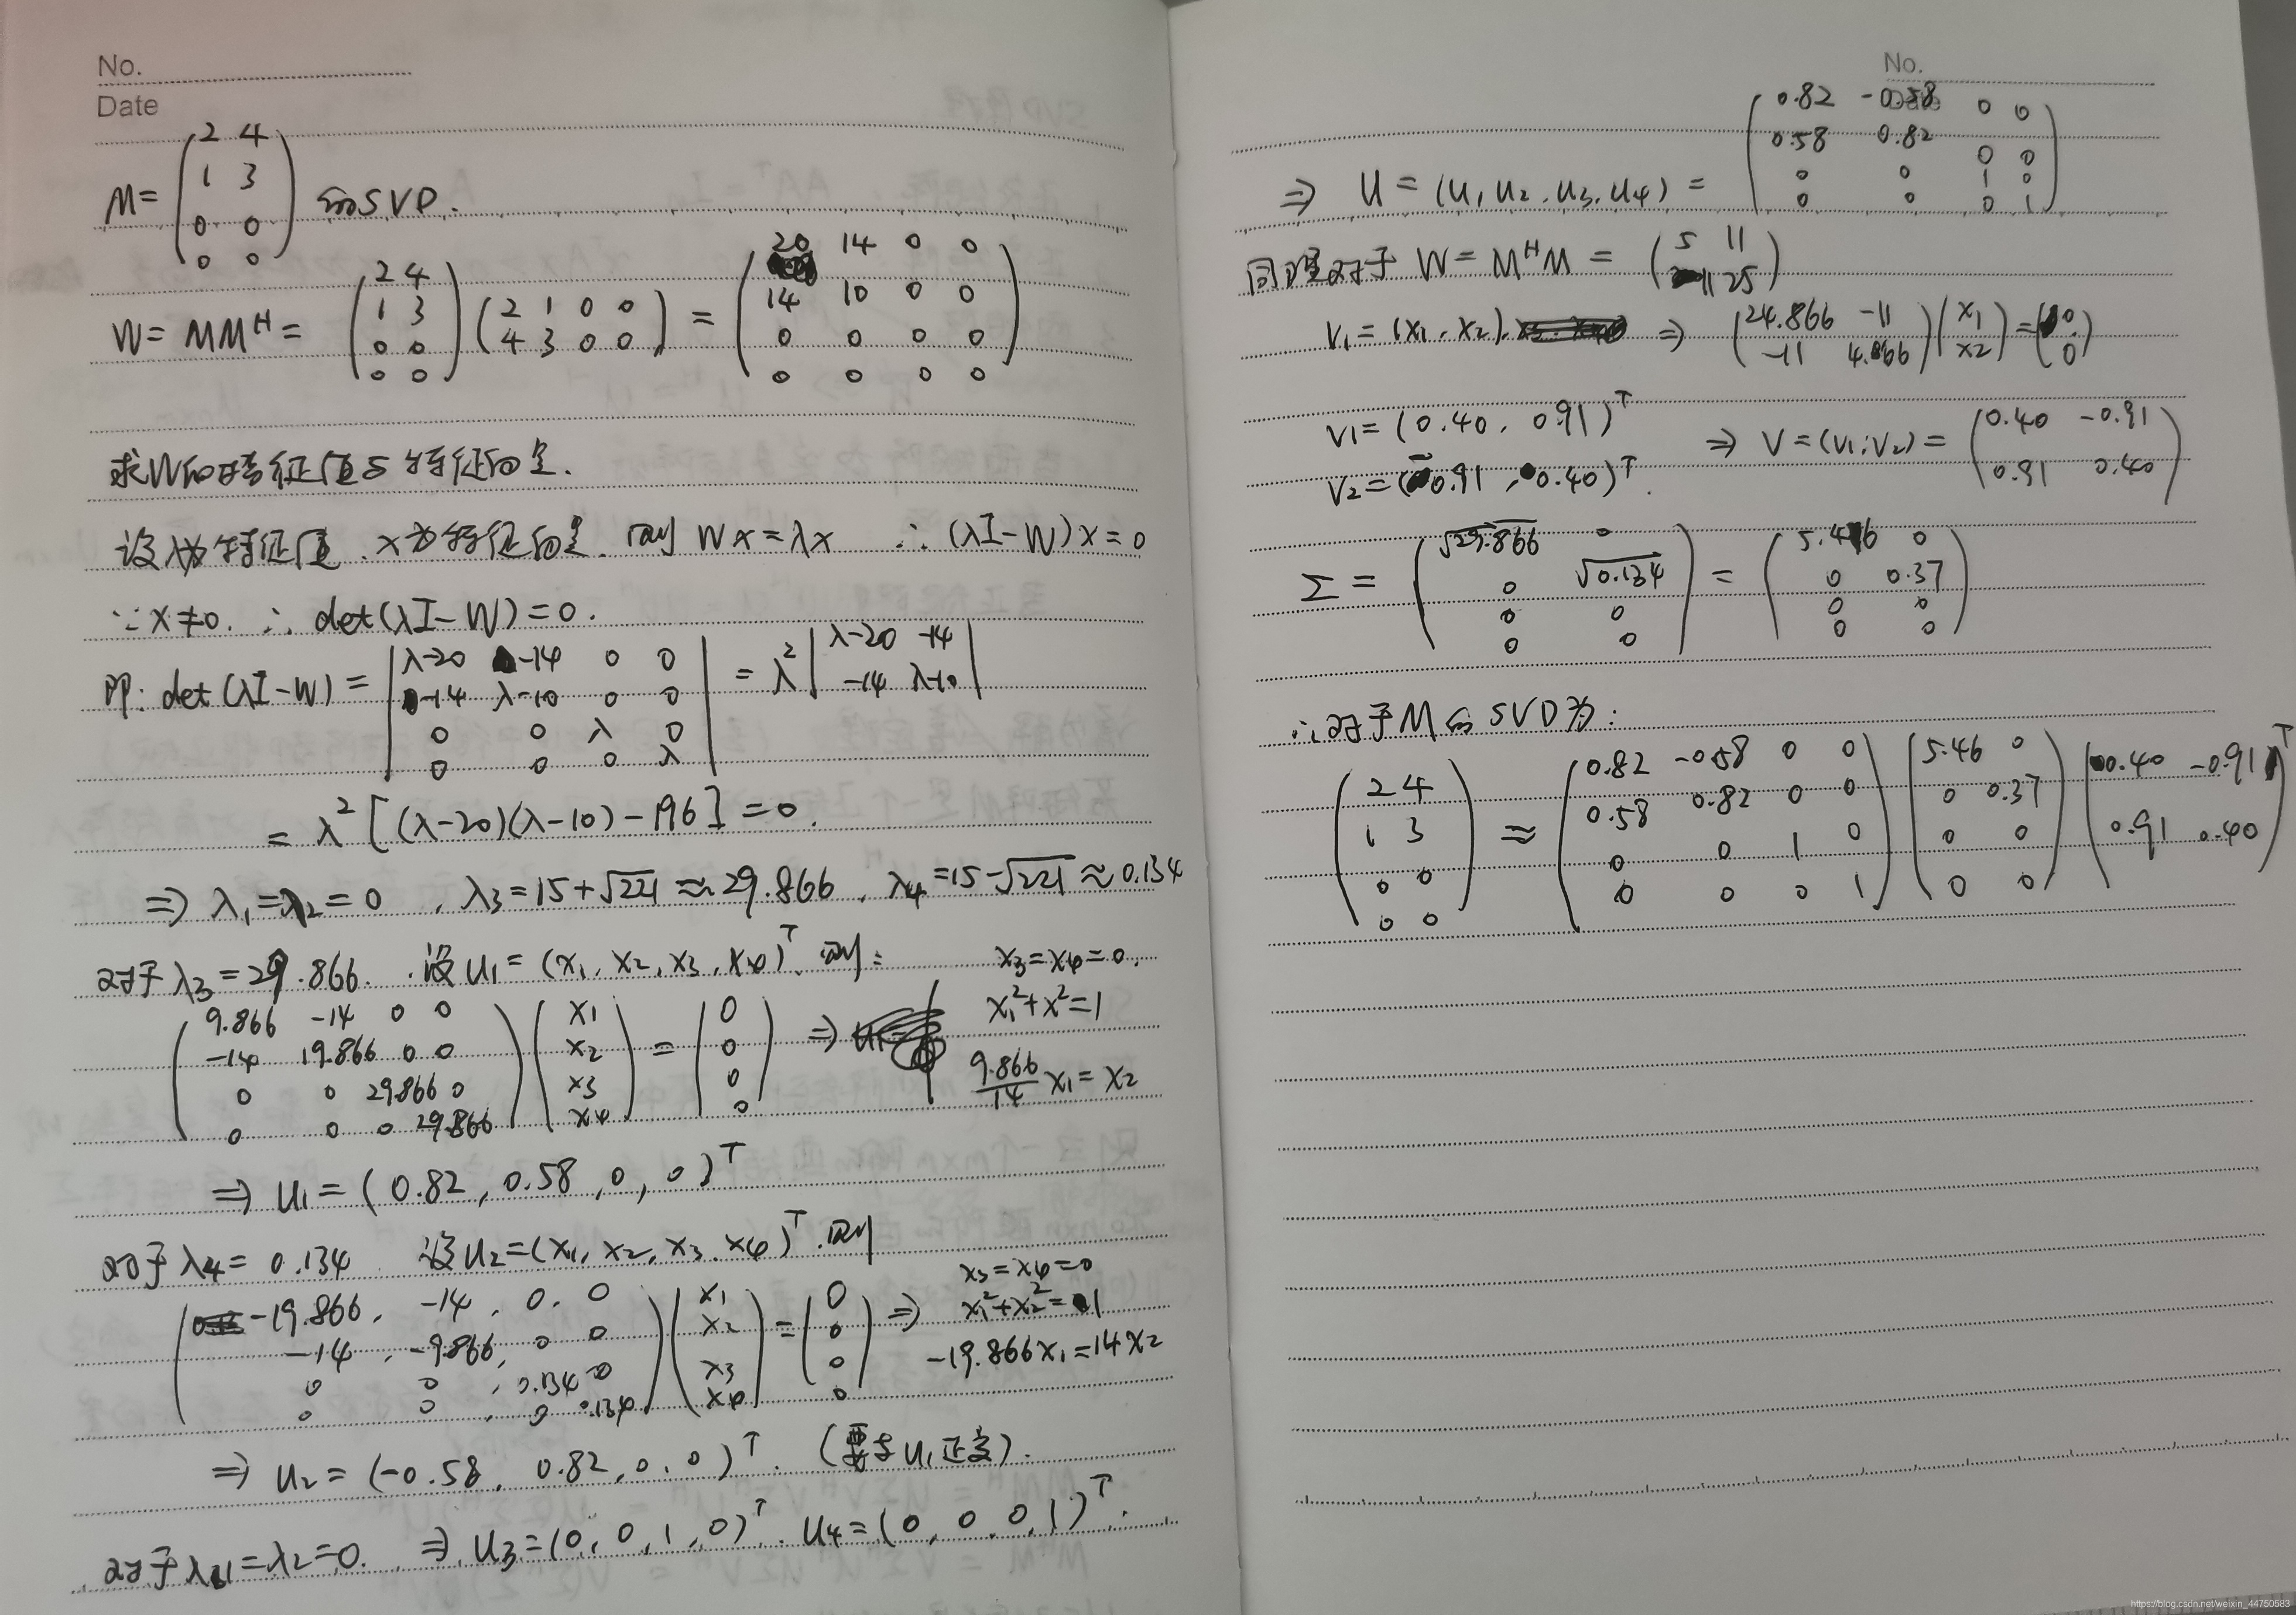 No.
Date
M = (2 4; 1 3; 0 0; 0 0) 的SVD.
W = MM^H = (2 4; 1 3; 0 0; 0 0) (2 1 0 0; 4 3 0 0) = (20 14 0 0; 14 10 0 0; 0 0 0 0; 0 0 0 0)
求W的特征值与特征向量.
设λ为特征值, x为特征向量. 则 Wx=λx ∴ (λI-W)x=0
∵ x≠0. ∴ det(λI-W)=0.
即: det(λI-W) = |λ-20 -14 0 0; -14 λ-10 0 0; 0 0 λ 0; 0 0 0 λ| = λ² |λ-20 -14; -14 λ-10|
= λ² [(λ-20)(λ-10)-196] = 0.
⇒ λ₁=λ₂=0 , λ₃=15+√221 ≈ 29.866 , λ₄=15-√221 ≈ 0.134
对于 λ₃=29.866. 设 u₁=(x₁, x₂, x₃, x₄)^T. 则:
(9.866 -14 0 0; -14 19.866 0 0; 0 0 29.866 0; 0 0 0 29.866) (x₁; x₂; x₃; x₄) = (0; 0; 0; 0) ⇒ x₃=x₄=0.
x₁²+x²=1
9.866/14 x₁ = x₂
⇒ u₁=(0.82, 0.58, 0, 0)^T
对于 λ₄=0.134 设 u₂=(x₁, x₂, x₃, x₄)^T. 则
(-19.866, -14, 0, 0; -14, -9.866, 0 0; 0 0, 0.134 0; 0 0, 0 0.134) (x₁; x₂; x₃; x₄) = (0; 0; 0; 0) ⇒ x₃=x₄=0
x₁²+x₂²=1
-19.866x₁=14x₂
⇒ u₂=(-0.58, 0.82, 0, 0)^T. (要与u₁正交).
对于 λ₁=λ₂=0. ⇒ u₃=(0, 0, 1, 0)^T. u₄=(0, 0, 0, 1)^T.
No.
Date
⇒ U=(u₁ u₂, u₃, u₄) = (0.82 -0.58 0 0; 0.58 0.82 0 0; 0 0 1 0; 0 0 0 1)
同理对于 W=M^H M = (5 11; 11 25)
v₁=(x₁, x₂) ⇒ (24.866 -11; -11 4.866) (x₁; x₂) = (0; 0)
v₁=(0.40, 0.91)^T
v₂=(-0.91, 0.40)^T. ⇒ V=(v₁, v₂) = (0.40 -0.91; 0.91 0.40)
Σ = (√29.866 0; 0 √0.134; 0 0; 0 0) = (5.46 0; 0 0.37; 0 0; 0 0)
∴ 对于M的SVD为:
(2 4; 1 3; 0 0; 0 0) ≈ (0.82 -0.58 0 0; 0.58 0.82 0 0; 0 0 1 0; 0 0 0 1) (5.46 0; 0 0.37; 0 0; 0 0) (0.40 -0.91; 0.91 0.40)^T
https://blog.csdn.net/weixin_44750583